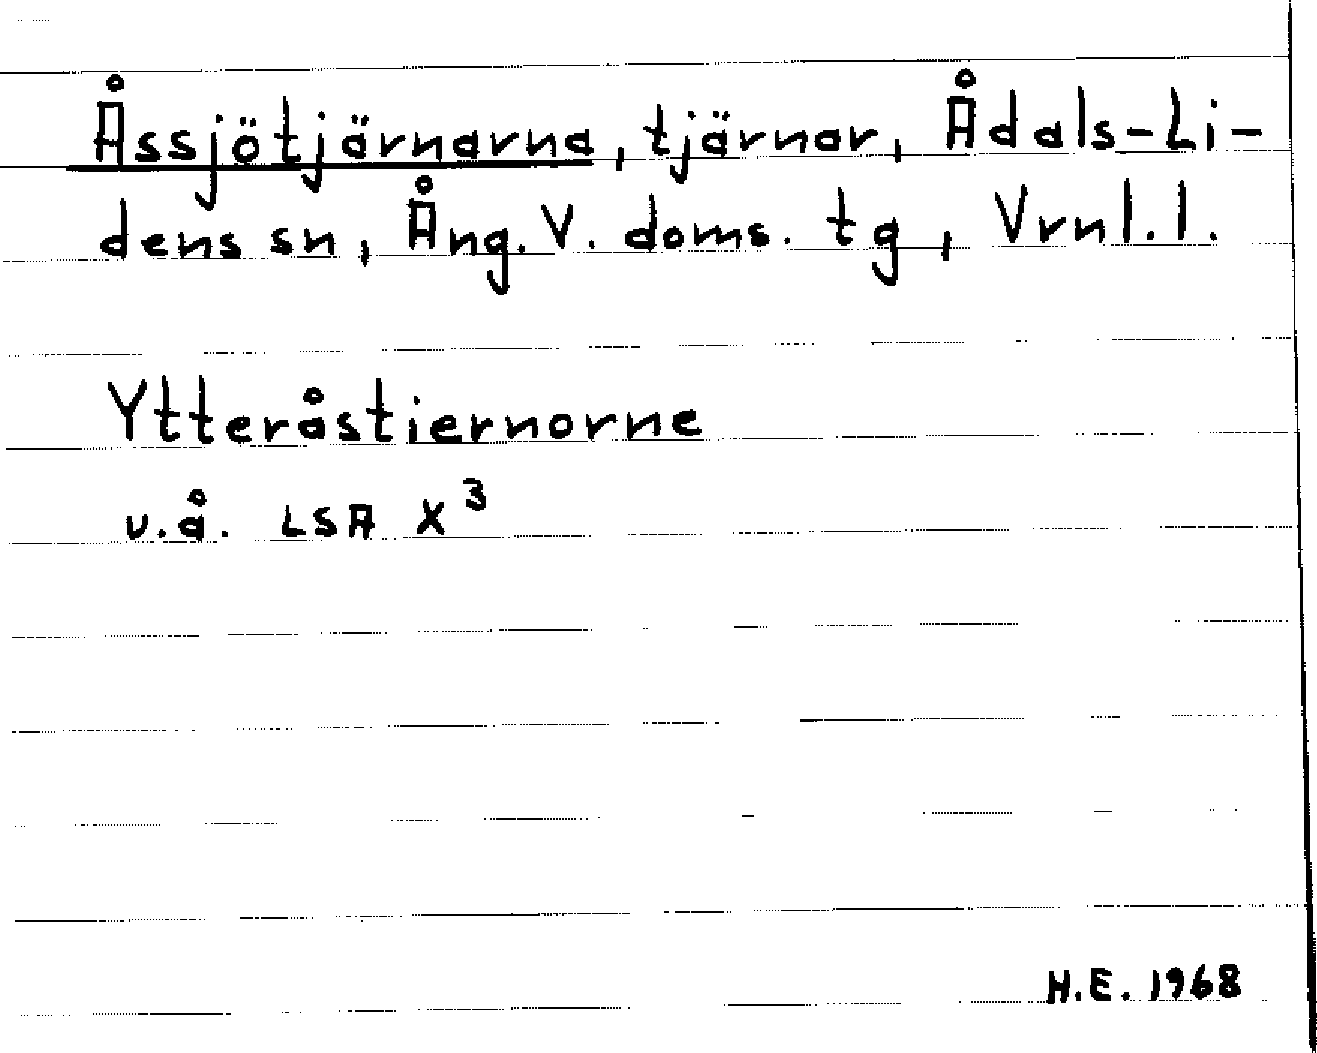 Åssjötjärnarna, tjärnar, Ådals-Li-
dens sn, Ång. V. doms. tg, Vrnl. l.
Ytteråstiernorne
u.å. LSA X³
H.E. 1968